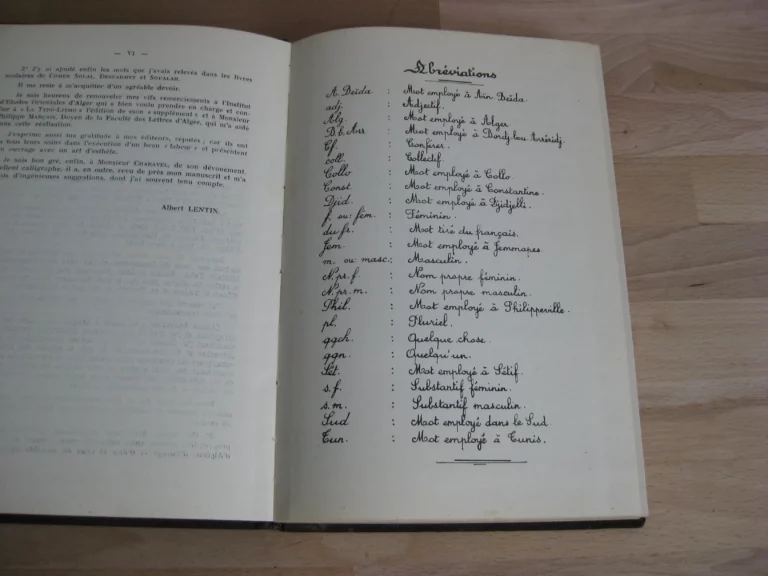 — VI —
2° J'y ai ajouté enfin les mots que j'avais relevés dans les livres
scolaires de COHEN SOLAL, DESPARMET et SOUALAH.
Il me reste à m'acquitter d'un agréable devoir.
Je suis heureux de renouveler mes vifs remerciements à l'Institut
d'Etudes Orientales d'Alger qui a bien voulu prendre en charge et con-
fier à « LA TYPO-LITHO » l'édition de mon « supplément » et à Monsieur
Philippe MARÇAIS, Doyen de la Faculté des Lettres d'Alger, qui m'a aidé
dans cette réalisation.
J'exprime aussi ma gratitude à mes éditeurs, réputés ; car ils ont
tous leurs soins dans l'exécution d'un beau « labeur » et présentent
ouvrage avec un art d'esthète.
Je sais bon gré, enfin, à Monsieur CHARAVEL, de son dévouement.
excellent calligraphe, il a, en outre, revu de près mon manuscrit et m'a
d'ingénieuses suggestions, dont j'ai souvent tenu compte.
Albert LENTIN.
Abréviations
A. Beïda : Mot employé à Aïn Beïda.
adj. : Adjectif.
Alg. : Mot employé à Alger
B.b.Arr : Mot employé à Bordj-bou Arréridj.
Cf. : Conférer.
coll. : Collectif.
Collo : Mot employé à Collo.
Const. : Mot employé à Constantine.
Djid. : Mot employé à Djidjelli.
f. ou: fém. : Féminin.
du fr. : Mot tiré du français.
Jem. : Mot employé à Jemmapes.
m. ou masc.: Masculin.
N.pr.f. : Nom propre féminin.
N.pr.m. : Nom propre masculin.
Phil. : Mot employé à Philippeville.
pl. : Pluriel.
qqch. : Quelque chose.
qqn. : Quelqu'un.
Sét. : Mot employé à Sétif.
s.f. : Substantif féminin.
s.m. : Substantif masculin.
Sud : Mot employé dans le Sud.
Tun. : Mot employé à Tunis.